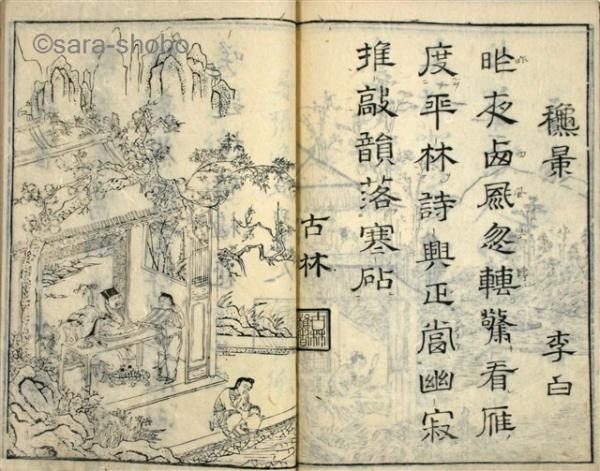 穐景
李白
昨夜西風忽轉驚看雁
度平林詩興正當幽寂
推敲韻落寒砧
古林
©sara-shobo